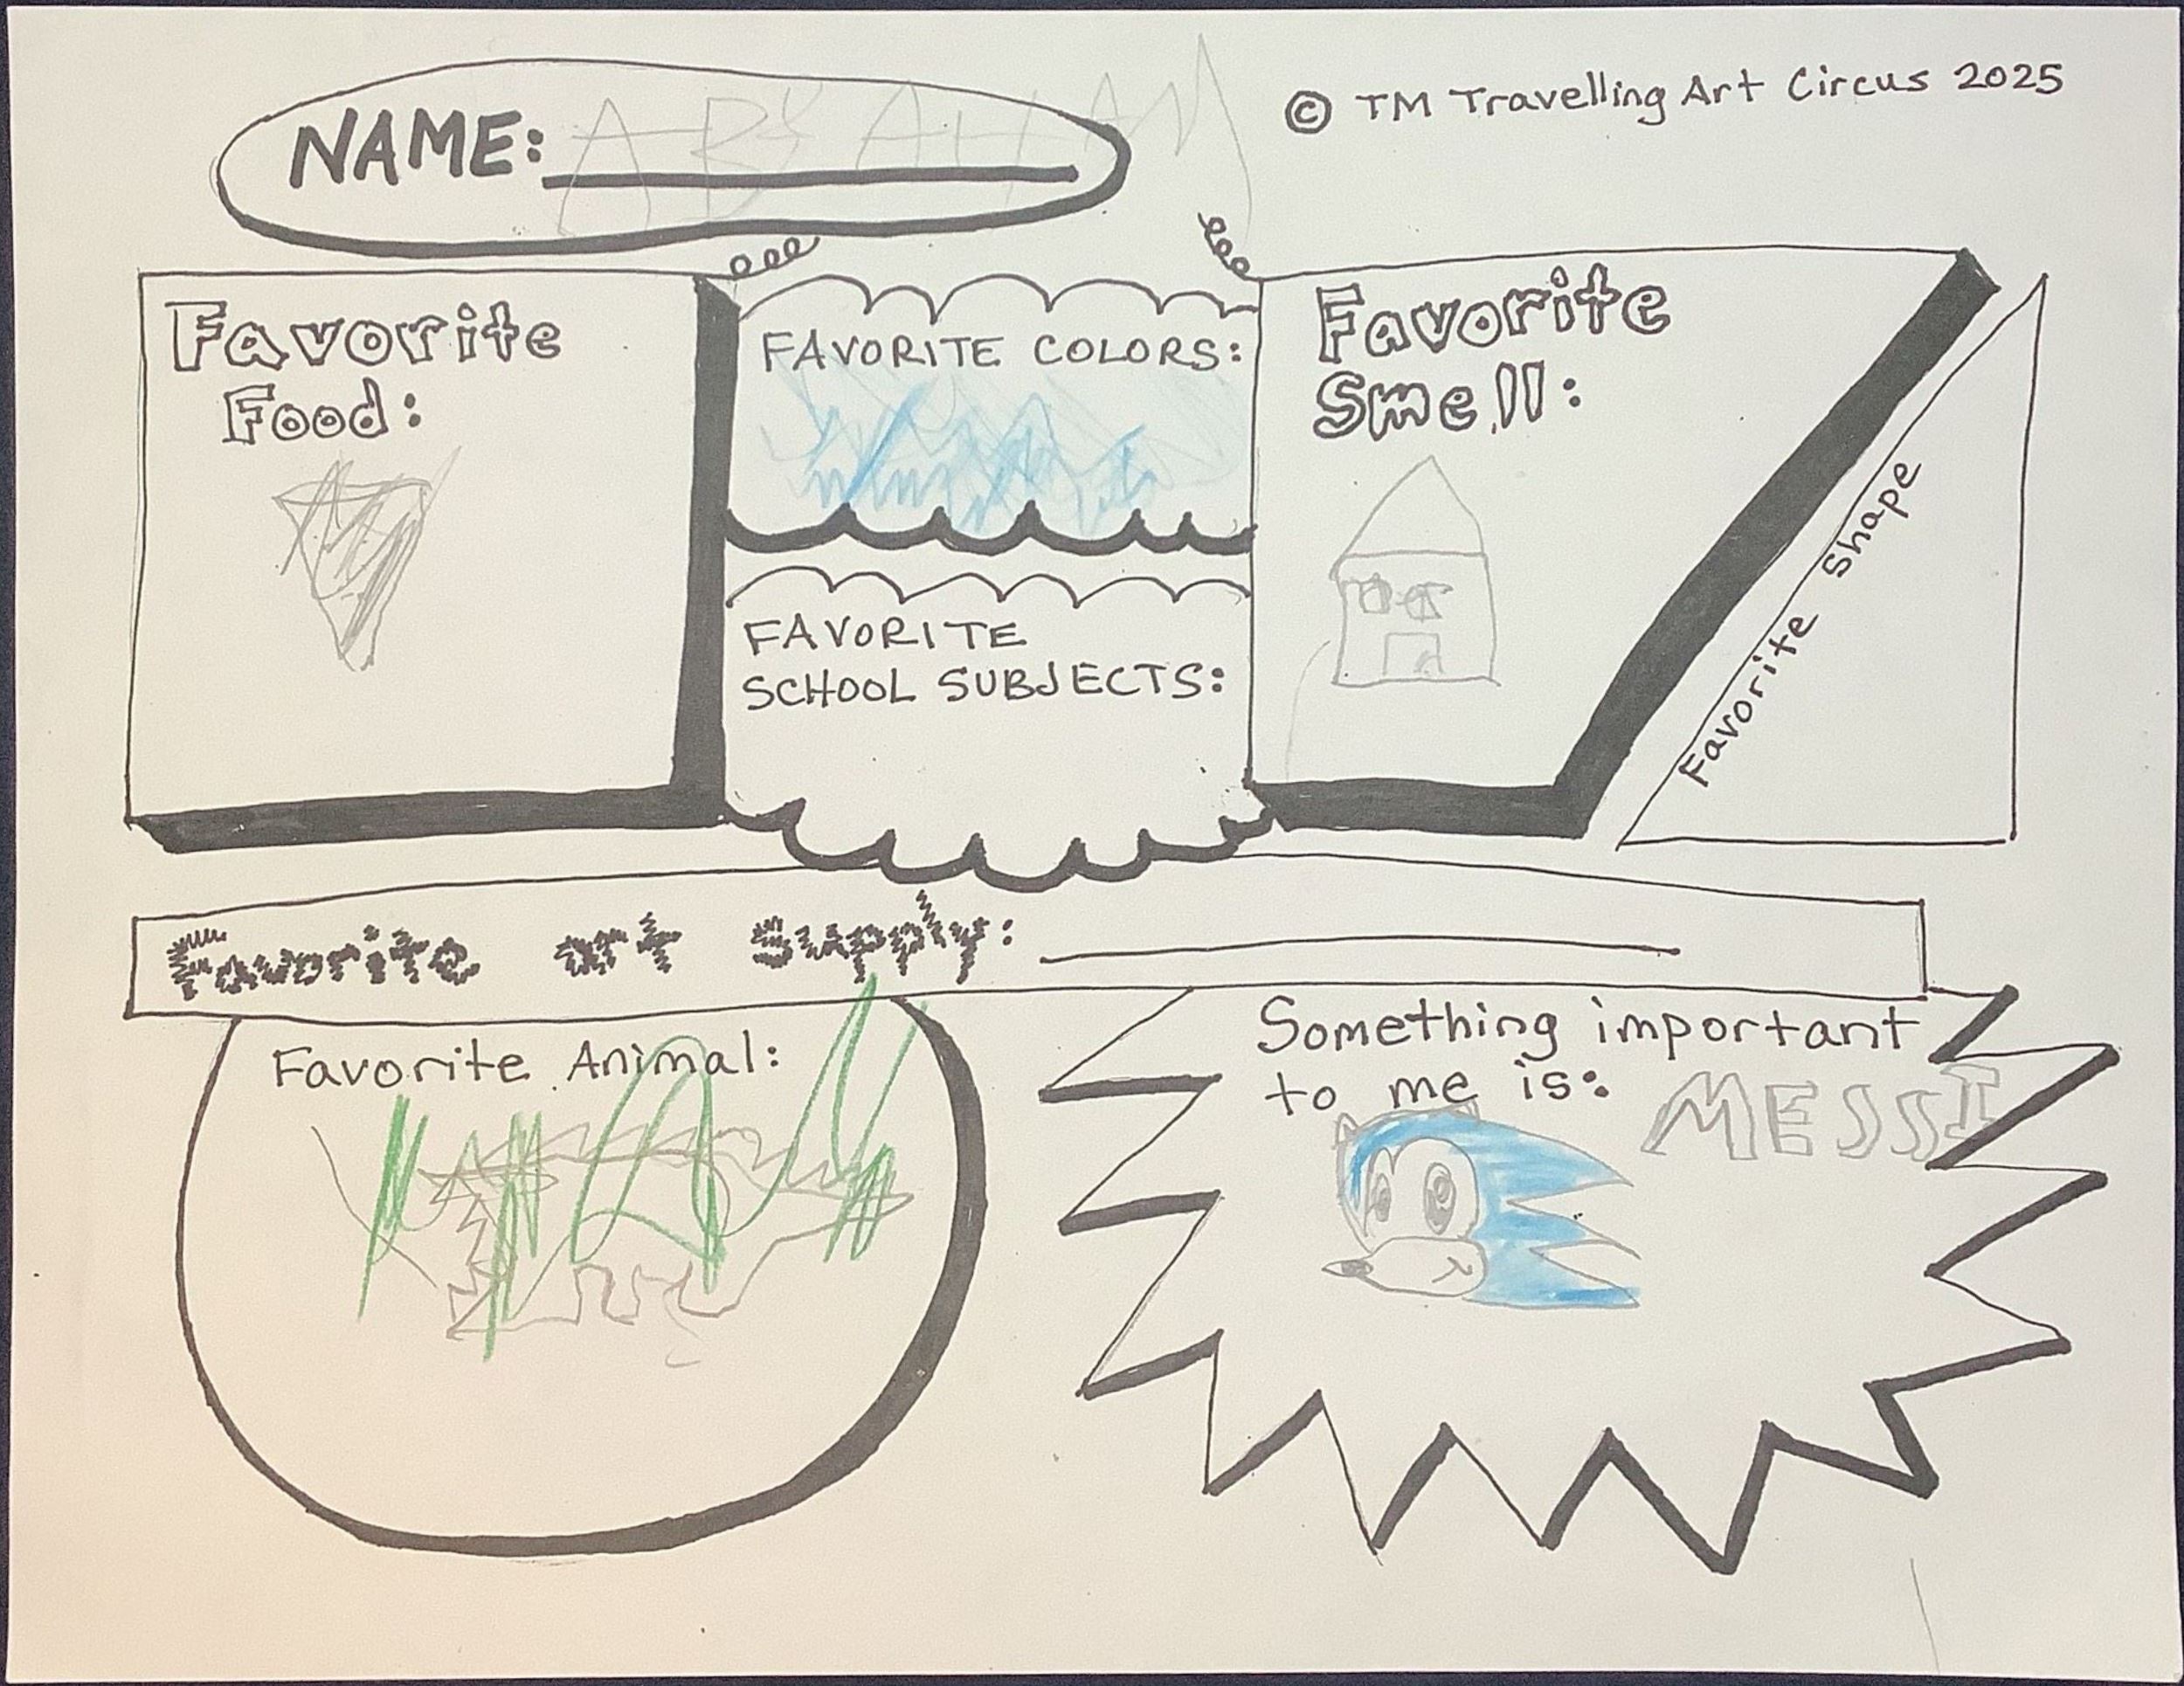 © TM Travelling Art Circus 2025
NAME:
Favorite
Food:
FAVORITE COLORS:
FAVORITE
SCHOOL SUBJECTS:
Favorite
Smell:
Favorite Shape
Favorite art Supply:
Favorite Animal:
Something important
to me is:
MESSI